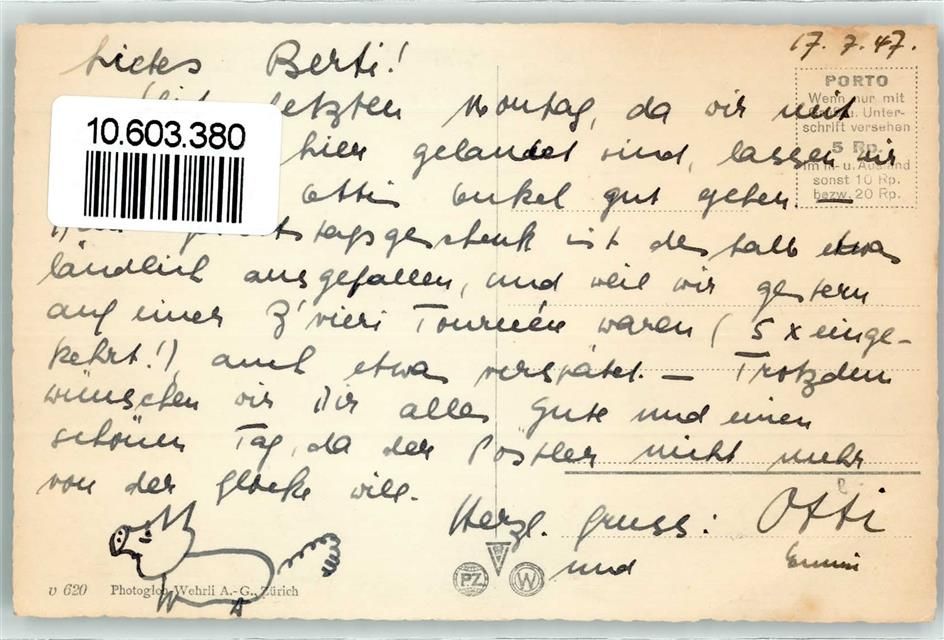 17. 7. 47.
Liebes Berti!
Seit letzten Montag, da wir mit
hier gelandet sind, lassen wir
Ottis Onkel gut gehen. —
Dein Geburtstagsgeschenk ist deshalb etwas
ländlich ausgefallen, und weil wir gestern
auf einer Z'vieri Tournée waren (5 x einge-
kehrt!), auch etwas verspätet. — Trotzdem
wünschen wir Dir alles Gute und einen
schönen Tag, da der Pöstler nicht mehr
von der Glocke will.
Herzl. Gruss: Otti
und Emmi
10.603.380
PORTO
Wenn nur mit
u. Unter-
schrift versehen
5 Rp.
im In- u. Ausland
sonst 10 Rp.
bezw. 20 Rp.
PZ W
v 620 Photoglob-Wehrli A.-G., Zürich